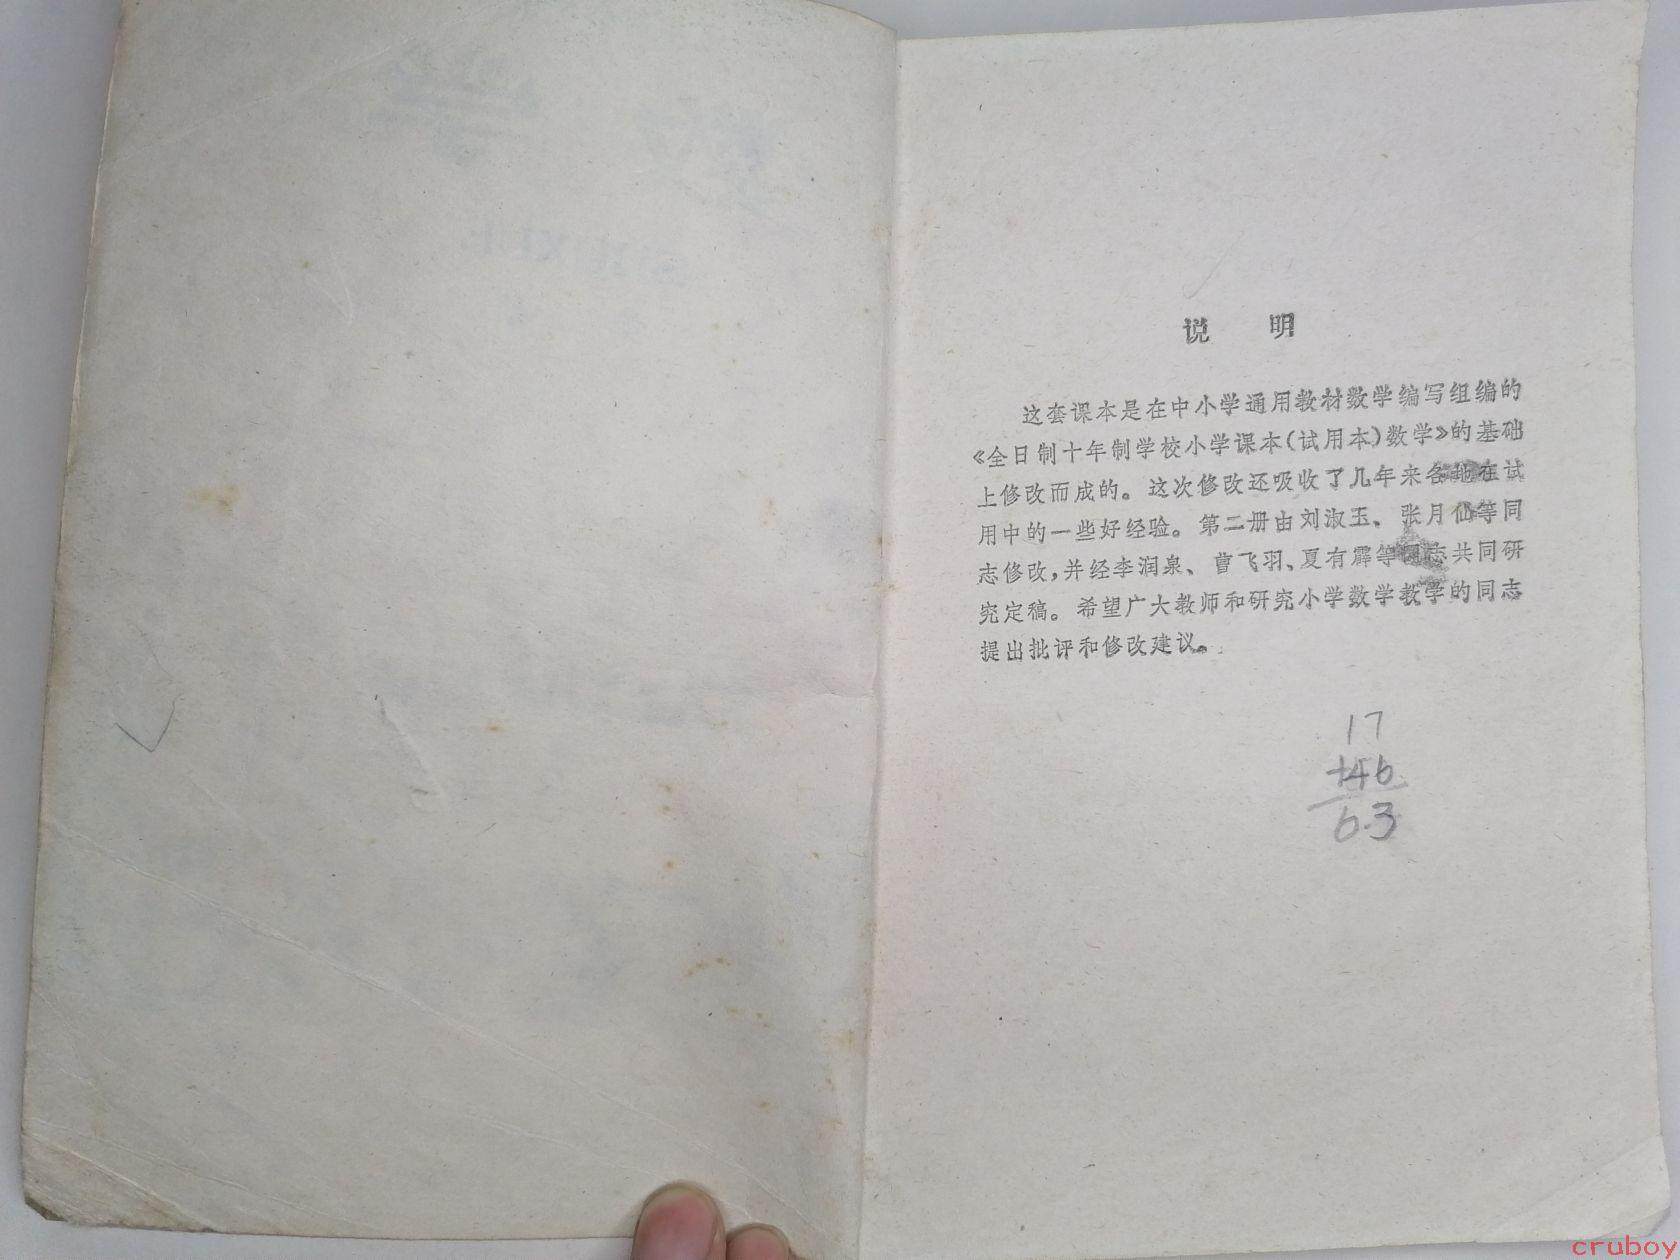 说 明
这套课本是在中小学通用教材数学编写组编的
《全日制十年制学校小学课本(试用本)数学》的基础
上修改而成的。这次修改还吸收了几年来各地在试
用中的一些好经验。第二册由刘淑玉、张月仙等同
志修改,并经李润泉、曹飞羽、夏有霖等同志共同研
究定稿。希望广大教师和研究小学数学教学的同志
提出批评和修改建议。
17
+46
63
cruboy